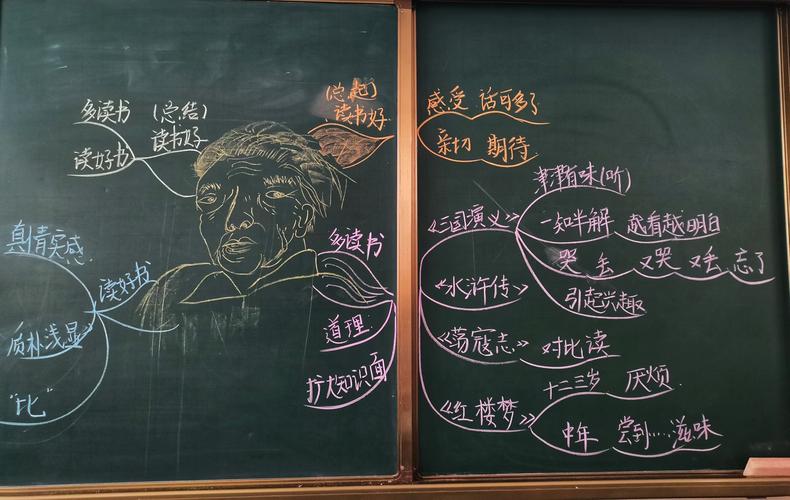 (总结)
读书好
多读书
读好书
(总起)
读书好
感受 话可多了
亲切 期待
多读书
道理
扩大知识面
《三国演义》
津津有味(听)
一知半解 越看越明白
哭 丢 又哭 又丢 忘了
引起兴趣
《水浒传》
《荡寇志》 对比读
《红楼梦》
十二三岁 厌烦
中年 尝到……滋味
读好书
真情实感
质朴浅显
"比"